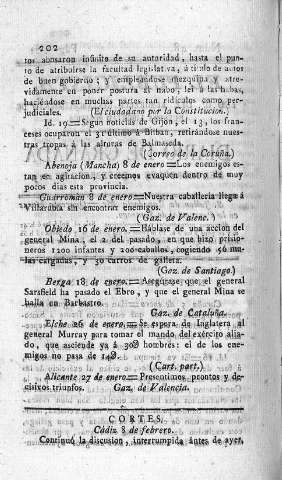 202
tos abusaron infinito de su autoridad, hasta el pun-
to de atribuirse la facultad legislativa, á título de autos
de buen gobierno; y empleándose mezquina y atre-
vidamente en poner postura al nabo, lei á las habas,
haciéndose en muchas partes tan ridículos como per-
judiciales. (El ciudadano por la Constitucion.)
Id. 19.=Segun noticias de Gijon, el 13, los fran-
ceses ocuparon el 31 último á Bilbao, retirándose nues-
tras tropas á las alturas de Balmaseda.
(Correo de la Coruña.)
Abenoja (Mancha) 8 de enero=Los enemigos es-
tan en agitacion, y creemos evaquen dentro de muy
pocos dias esta provincia.
Guarroman 8 de enero=Nuestra caballería llega á
Villarubia sin encontrar enemigos.
(Gaz. de Valenc.)
Obiedo 16 de enero.=Háblase de una accion del
general Mina, el 2 del pasado, en que hizo prisio-
neros 1200 infantes y 200 caballos, cogiendo 56 mu-
las cargadas, y 30 carros de galleta.
(Gaz. de Santiago.)
Berga 18 de enero.=Asegúrase que el general
Sarsfield ha pasado el Ebro, y que el general Mina se
halla en Barbastro.
Gaz. de Cataluña.
Elche 26 de enero.=Se espera de Inglaterra al
general Murray para tomar el mando del exército alia-
do, que asciende yá á hombres: el de los ene-
migos no pasa de
(Cart. part.)
Alicante 27 de enero=Presentimos prontos y de-
cisivos triunfos. Gaz. de Valencia.
CORTES.
Cádiz 8 de febrero.
Continuó la discusion, interrumpida ántes de ayer,